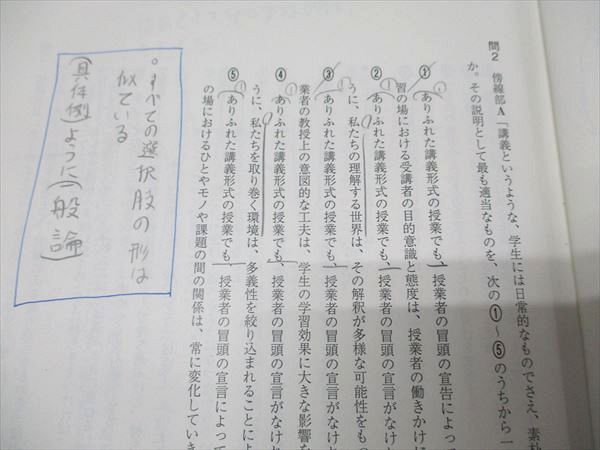 問2 傍線部A「講義というような、学生には日常的なものでさえ、素朴
か。その説明として最も適当なものを、次の①〜⑤のうちから一
① ありふれた講義形式の授業でも、授業者の冒頭の宣告によって
習の場における受講者の目的意識と態度は、授業者の働きかけに
② ありふれた講義形式の授業でも、授業者の冒頭の宣言がなけ
うに、私たちの理解する世界は、その解釈が多様な可能性をもつ
③ ありふれた講義形式の授業でも、授業者の冒頭の宣言がなけれ
業者の教授上の意図的な工夫は、学生の学習効果に大きな影響を
④ ありふれた講義形式の授業でも、授業者の冒頭の宣言がなけれ
うに、私たちを取り巻く環境は、多義性を絞り込まれることによ
⑤ ありふれた講義形式の授業でも、授業者の冒頭の宣言によって
の場におけるひとやモノや課題の間の関係は、常に変化していき
。すべての選択肢の形は
似ている
(具体例)ように(一般論)